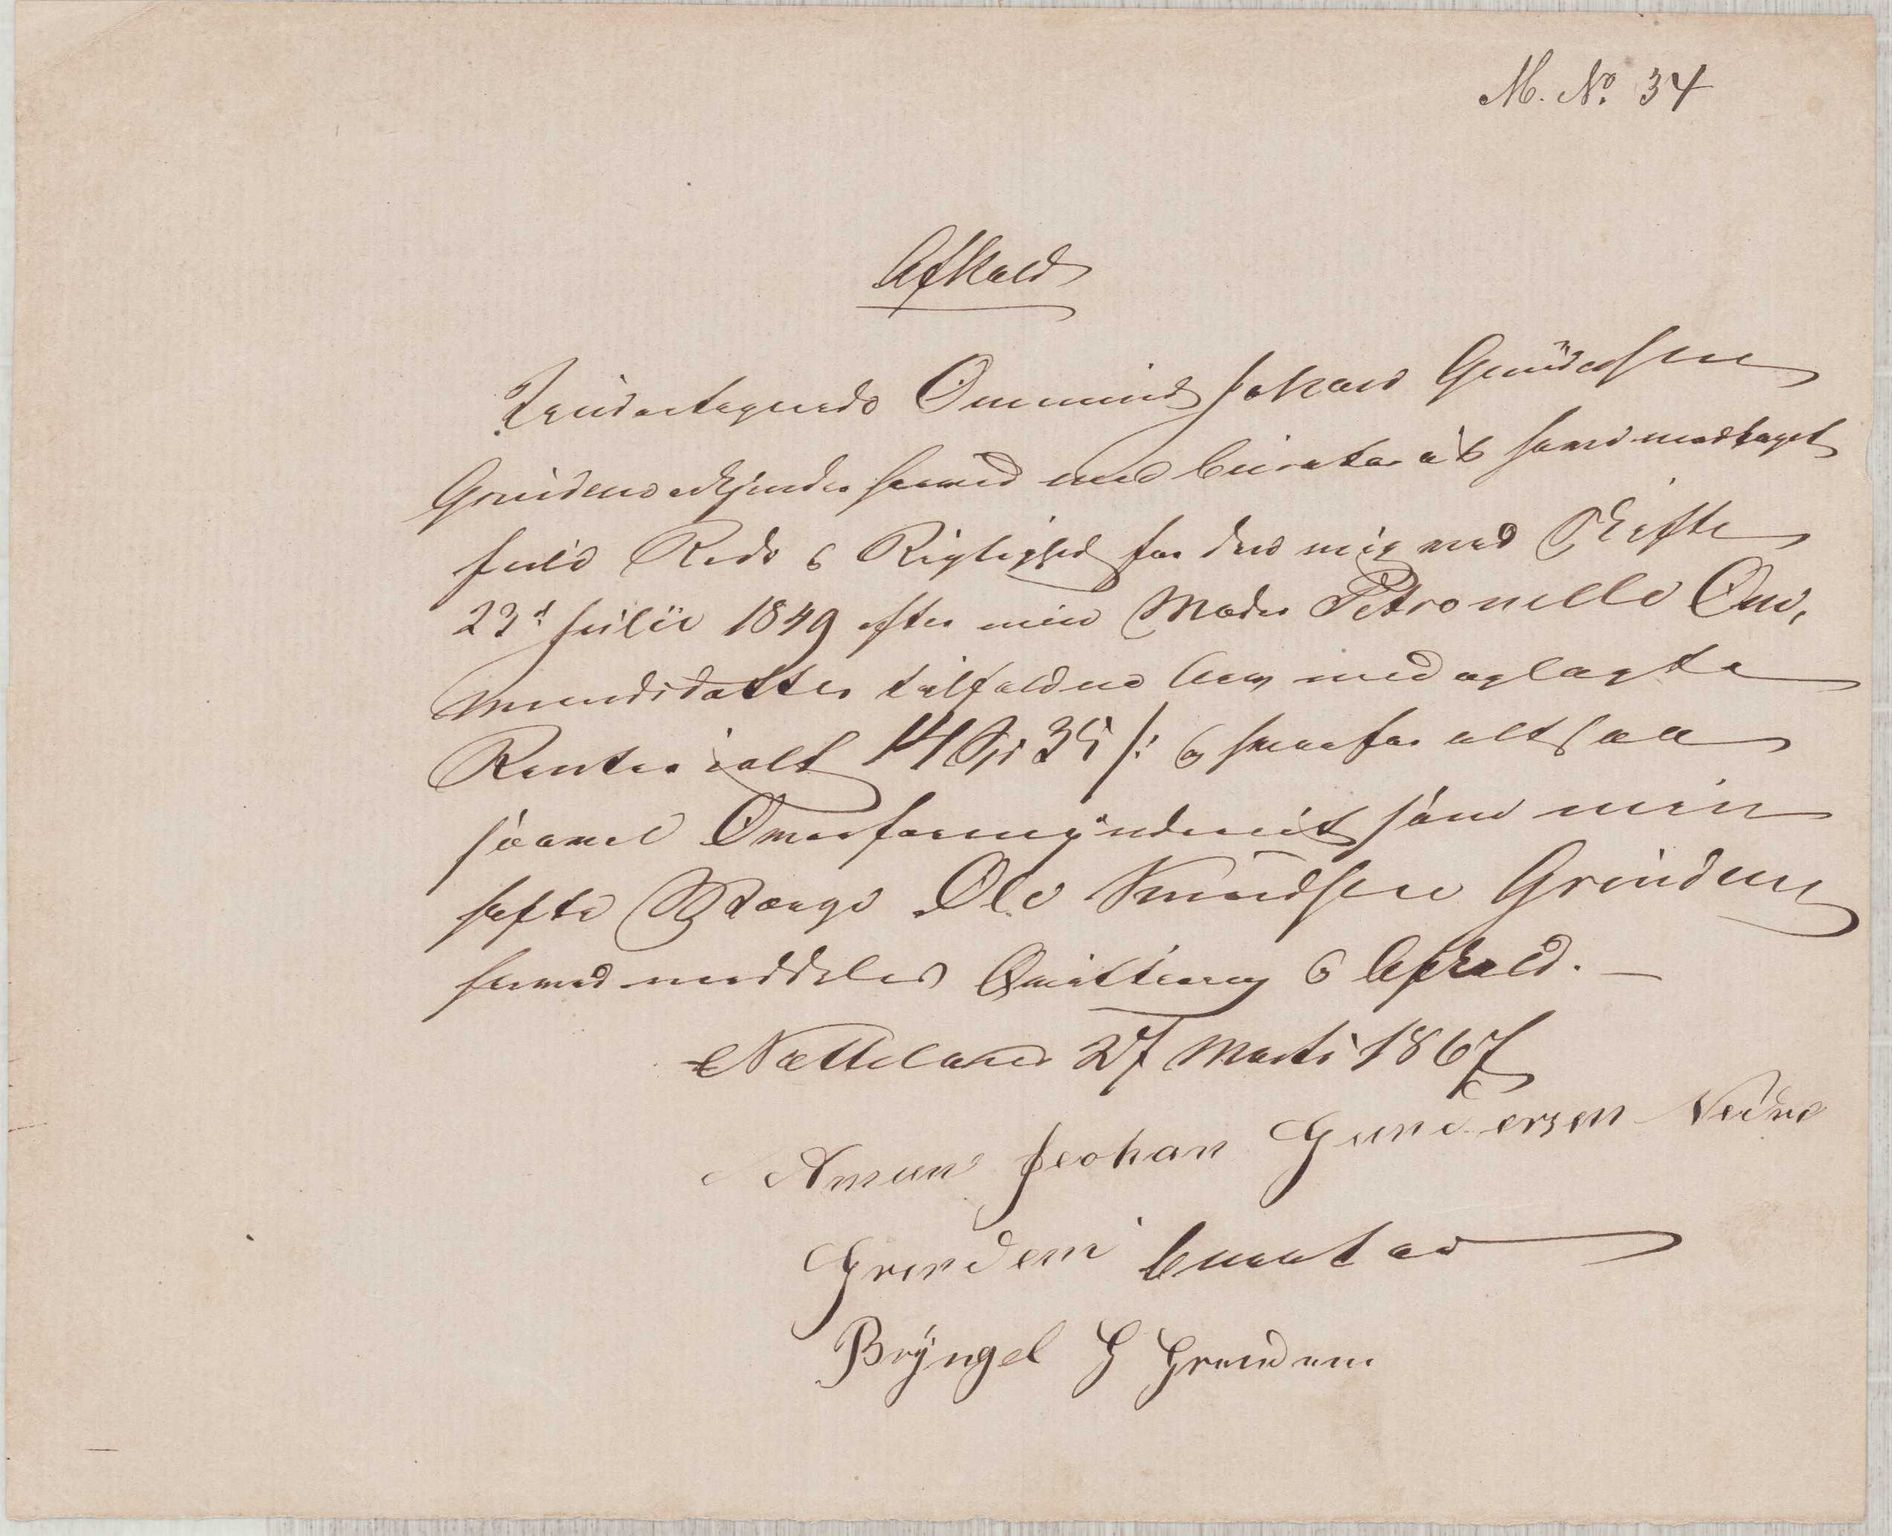 M. No. 34
Afkald
Undertegnede Ommund Johan Gundersen
Grindem erkjender herved med Curator at have modtaget
fuld Rede & Rigtighed for den mig ved Skifte
23d Julii 1849 efter min Moder Petronelle Om,
mundsdatter tilfaldne Arv med oplagte
Renter ialt 14 Sp 35 s: & hvorfor altsaa
saavel Overformynderiet som min
hafte Værge Ole Knudsen Grindem
herved meddeles Quittering & Afkald. —
Netteland 27 Marts 1867
Amun Jeohan Gundersen Nedre
Grindem Curator
Bryngel G Grindem